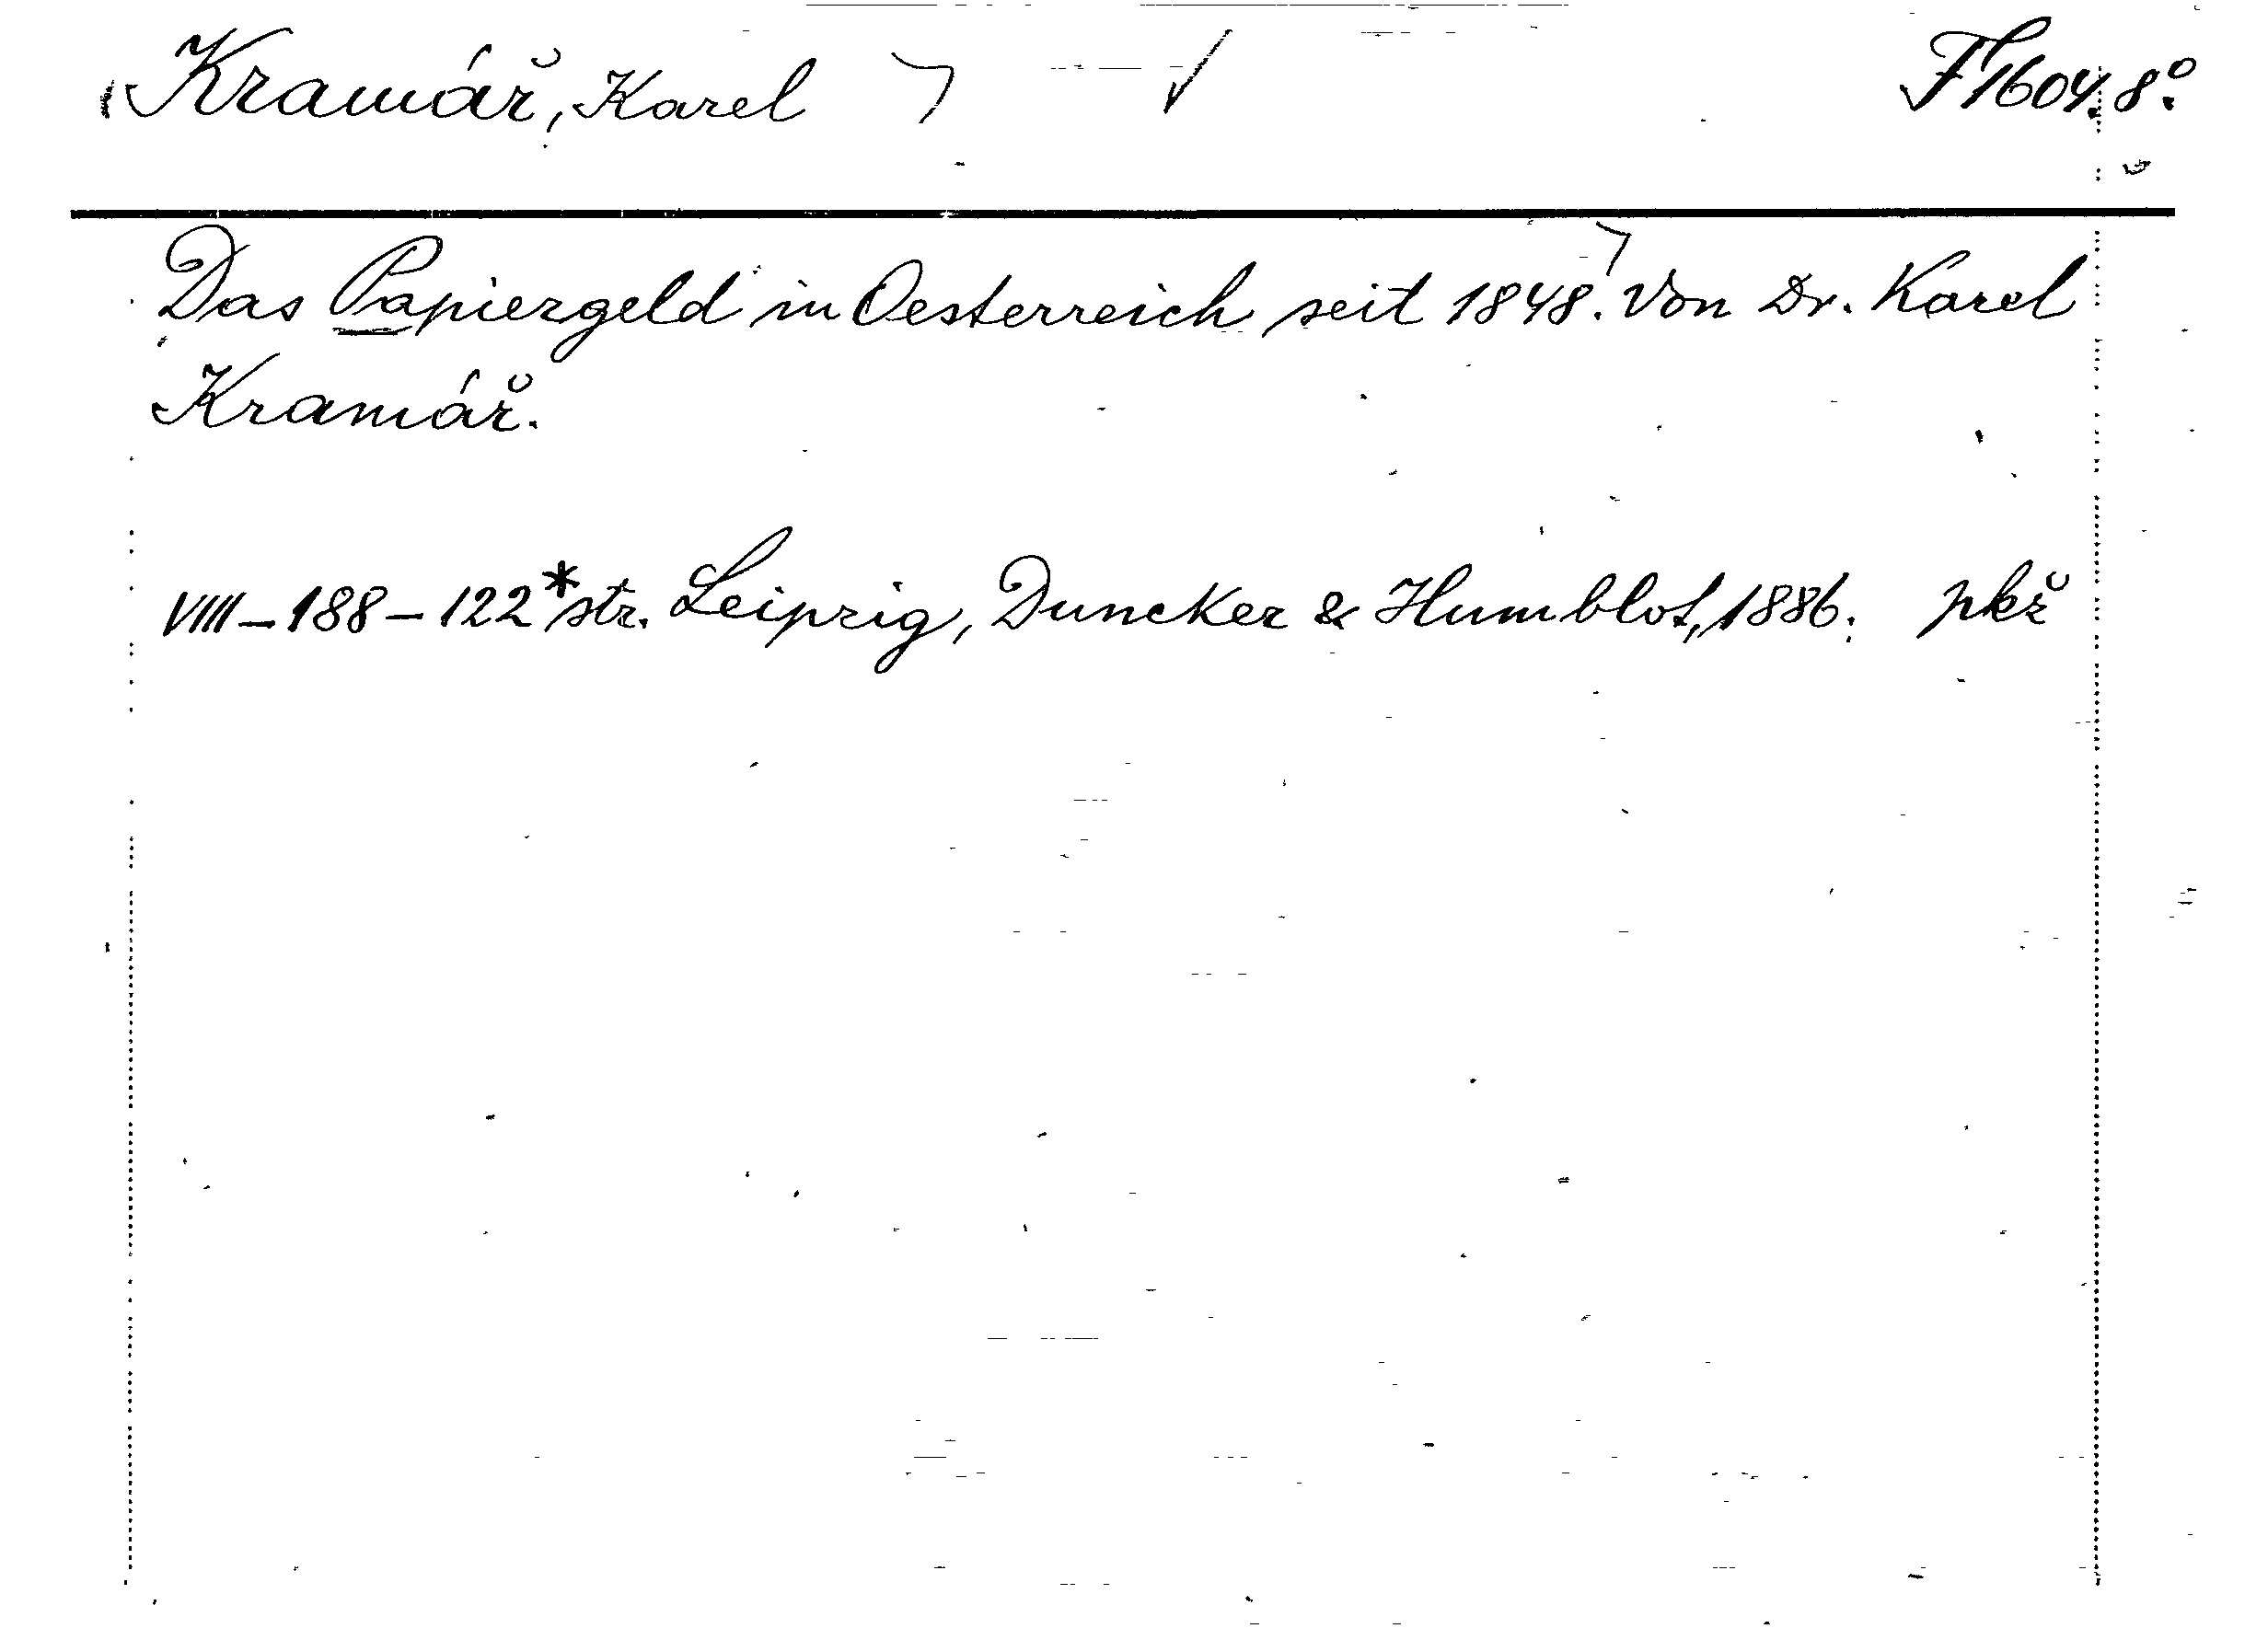 Kramář, Karel F 1604. 8°.
Das Papiergeld in Oesterreich seit 1848. Von Dr. Karel
Kramář.
VIII–188–122* str. Leipzig, Duncker & Humblot, 1886. pkž